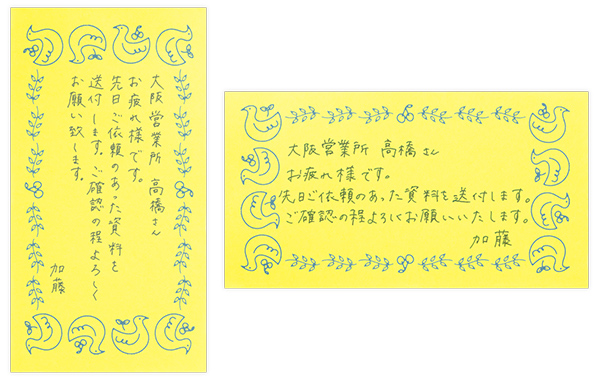 大阪営業所 高橋さん
お疲れ様です。
先日ご依頼のあった資料を
送付します。ご確認の程よろしく
お願い致します。
加藤
大阪営業所 高橋さん
お疲れ様です。
先日ご依頼のあった資料を送付します。
ご確認の程よろしくお願いいたします。
加藤